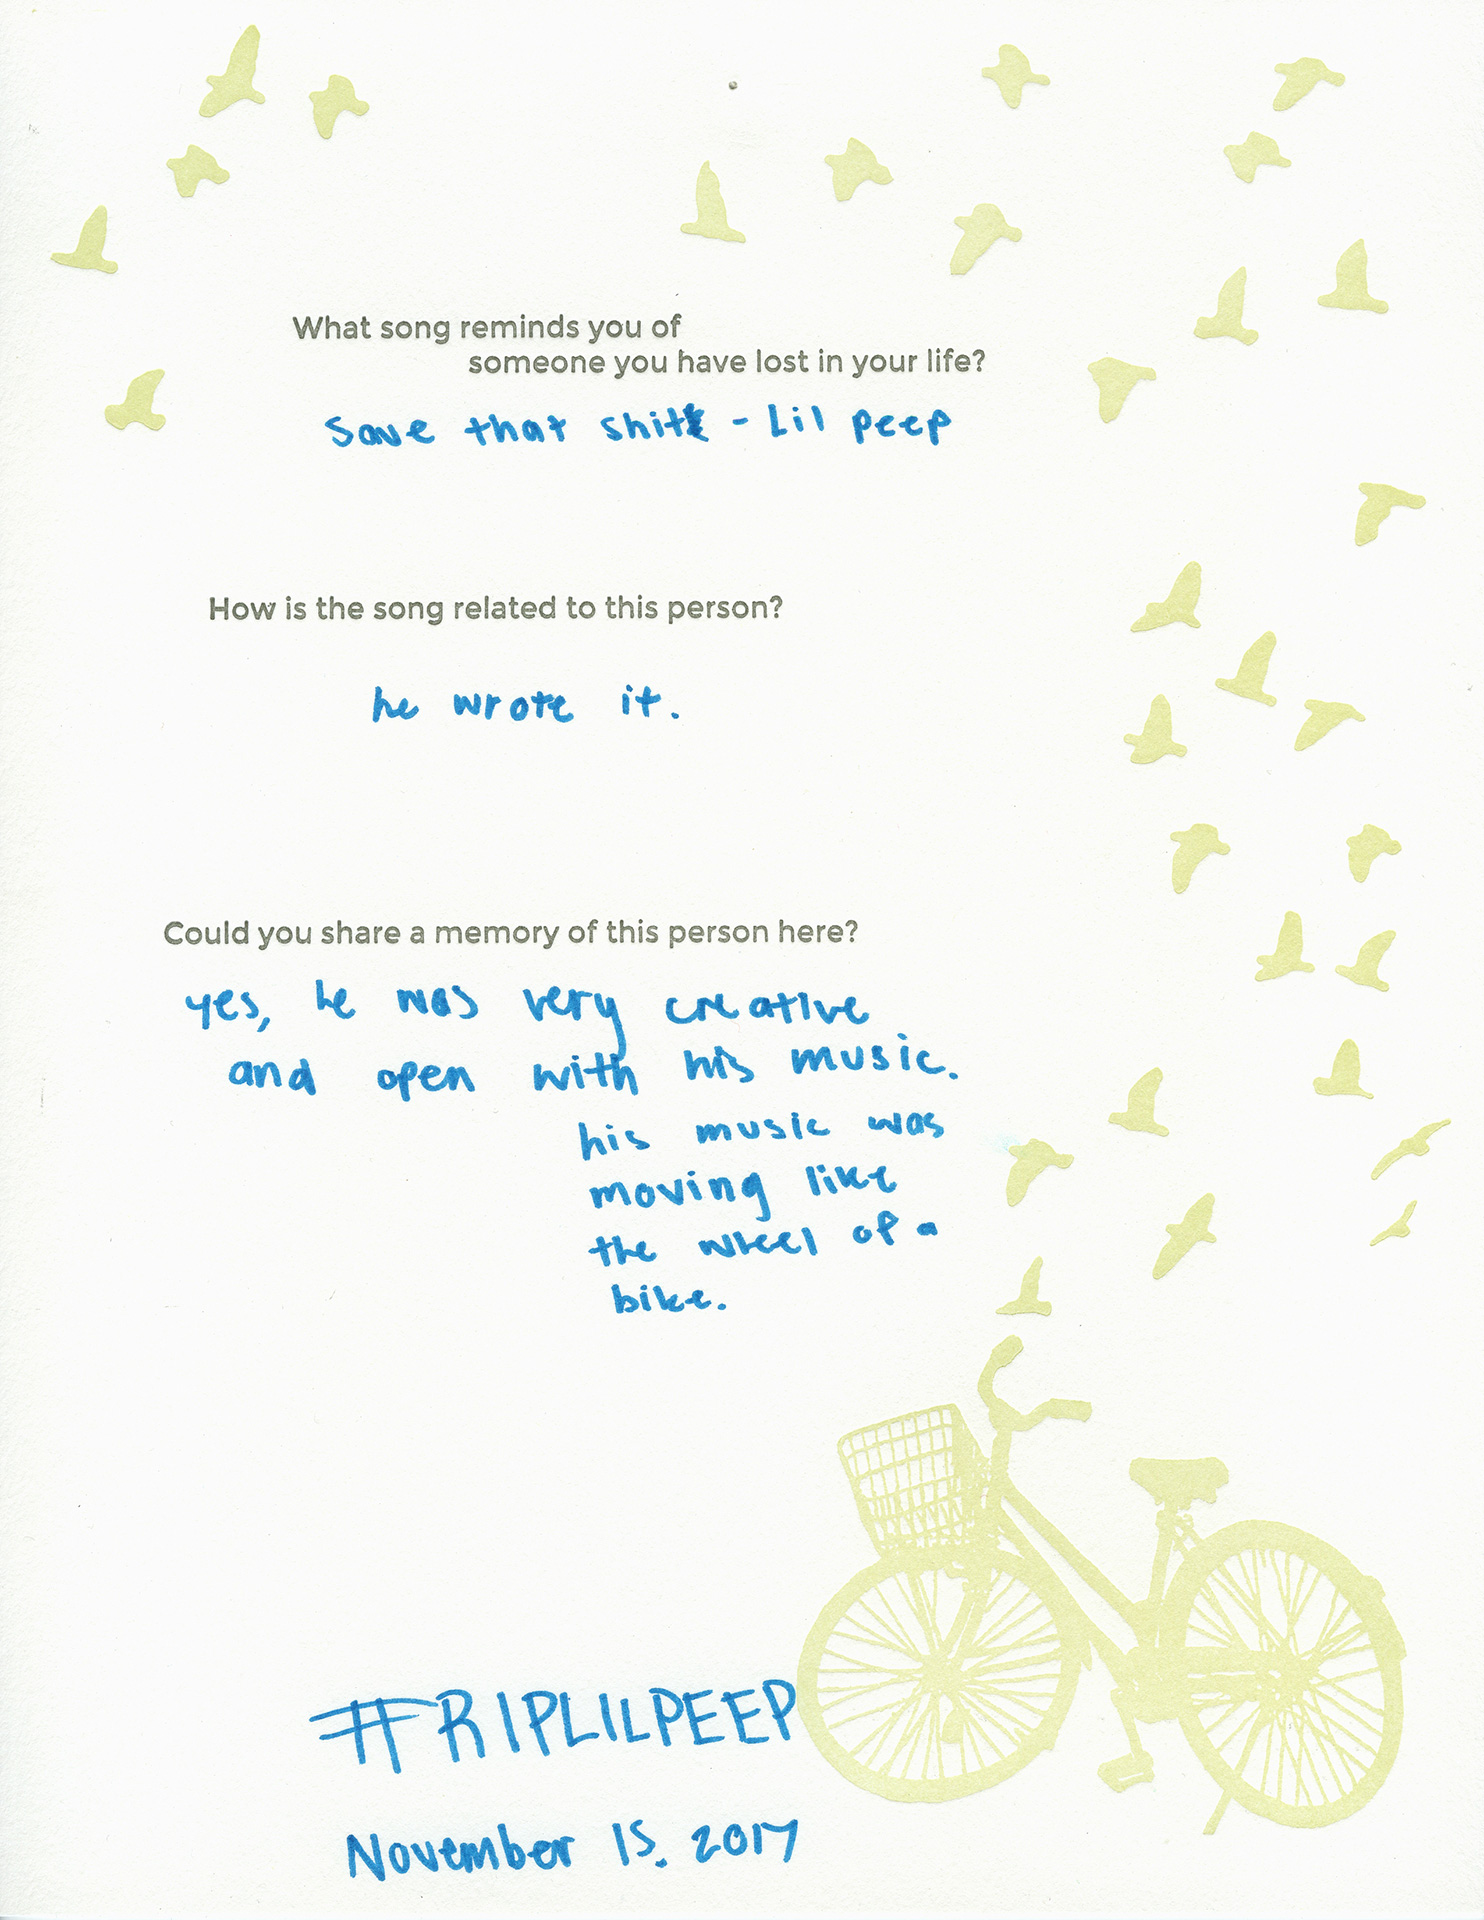 What song reminds you of
someone you have lost in your life?
Save that shit - Lil peep
How is the song related to this person?
he wrote it.
Could you share a memory of this person here?
yes, he was very creative
and open with his music.
his music was
moving like
the wheel of a
bike.
#RIPLILPEEP
November 15, 2017